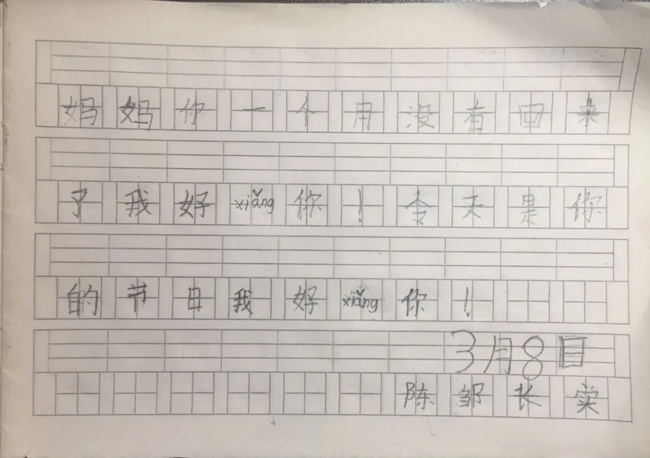 妈妈你一个月没有回来
了我好xiǎng你！今天是你
的节日我好xiǎng你！
3月8日
陈邹长实
4